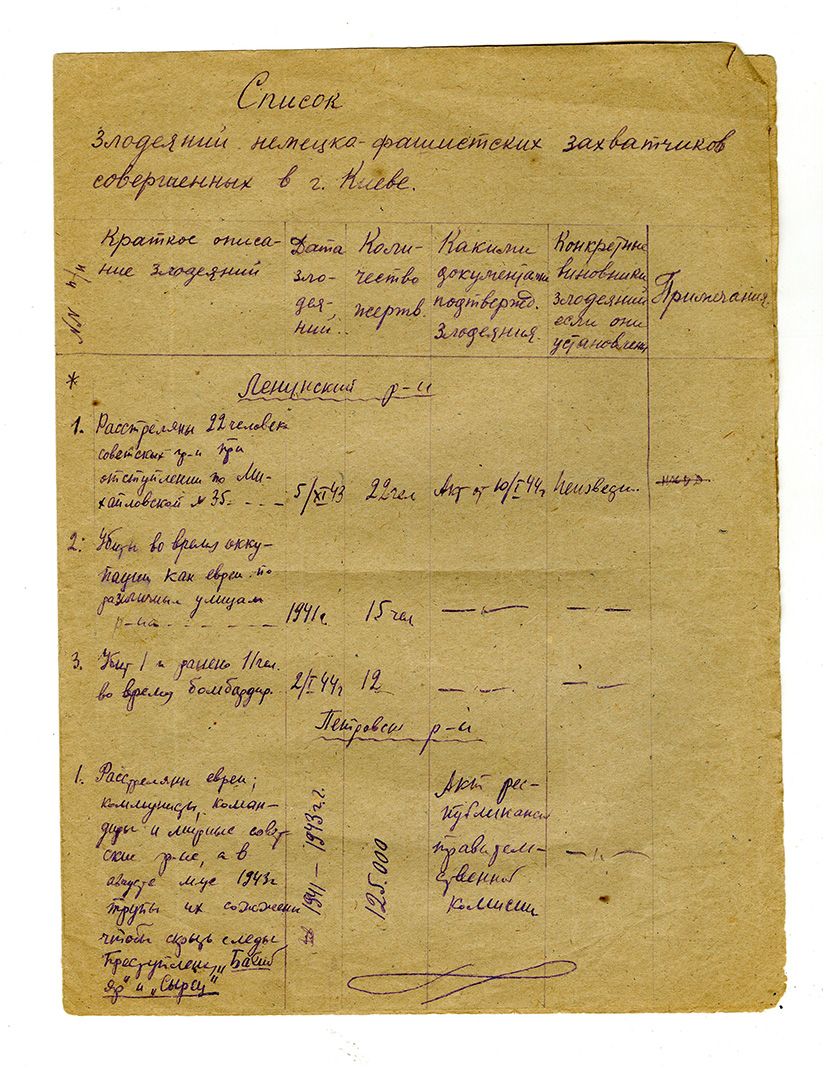 1
Список
злодеяний немецко-фашистских захватчиков
совершенных в г. Киеве.
NN п/п
Краткое описа-
ние злодеяний
Дата
зло-
дея-
ний..
Коли-
чество
жертв.
Какими
документами
подтвержд.
злодеяния.
Конкретные
виновники
злодеяний
если они
установлены
Примечания.
*
Ленинский р-н
1. Расстреляны 22 человек
советских гр-н при
отступлении по Ми-
хайловской № 35
5/XI 43
22 чел
Акт от 10/I 44г
Неизвестн.
2. Убиты во время окку-
пации как евреи по
различным улицам
р-на
1941г
15 чел
—"—
—"—
3. Убит 1 и ранено 11 чел.
во время бомбардир.
2/I 44г
12
—"—
—"—
Петровск р-н
1. Расстреляны евреи;
коммунисты, коман-
диры и мирные совет-
ские гр-не, а в
августе м-це 1943г
трупы их сожжены
чтобы скрыть следы
преступлен. „Бабий
яр" и „Сырец"
1941 – 1943 г.г.
125.000
Акт рес-
публиканск
правитель-
ственной
комиссии
—"—